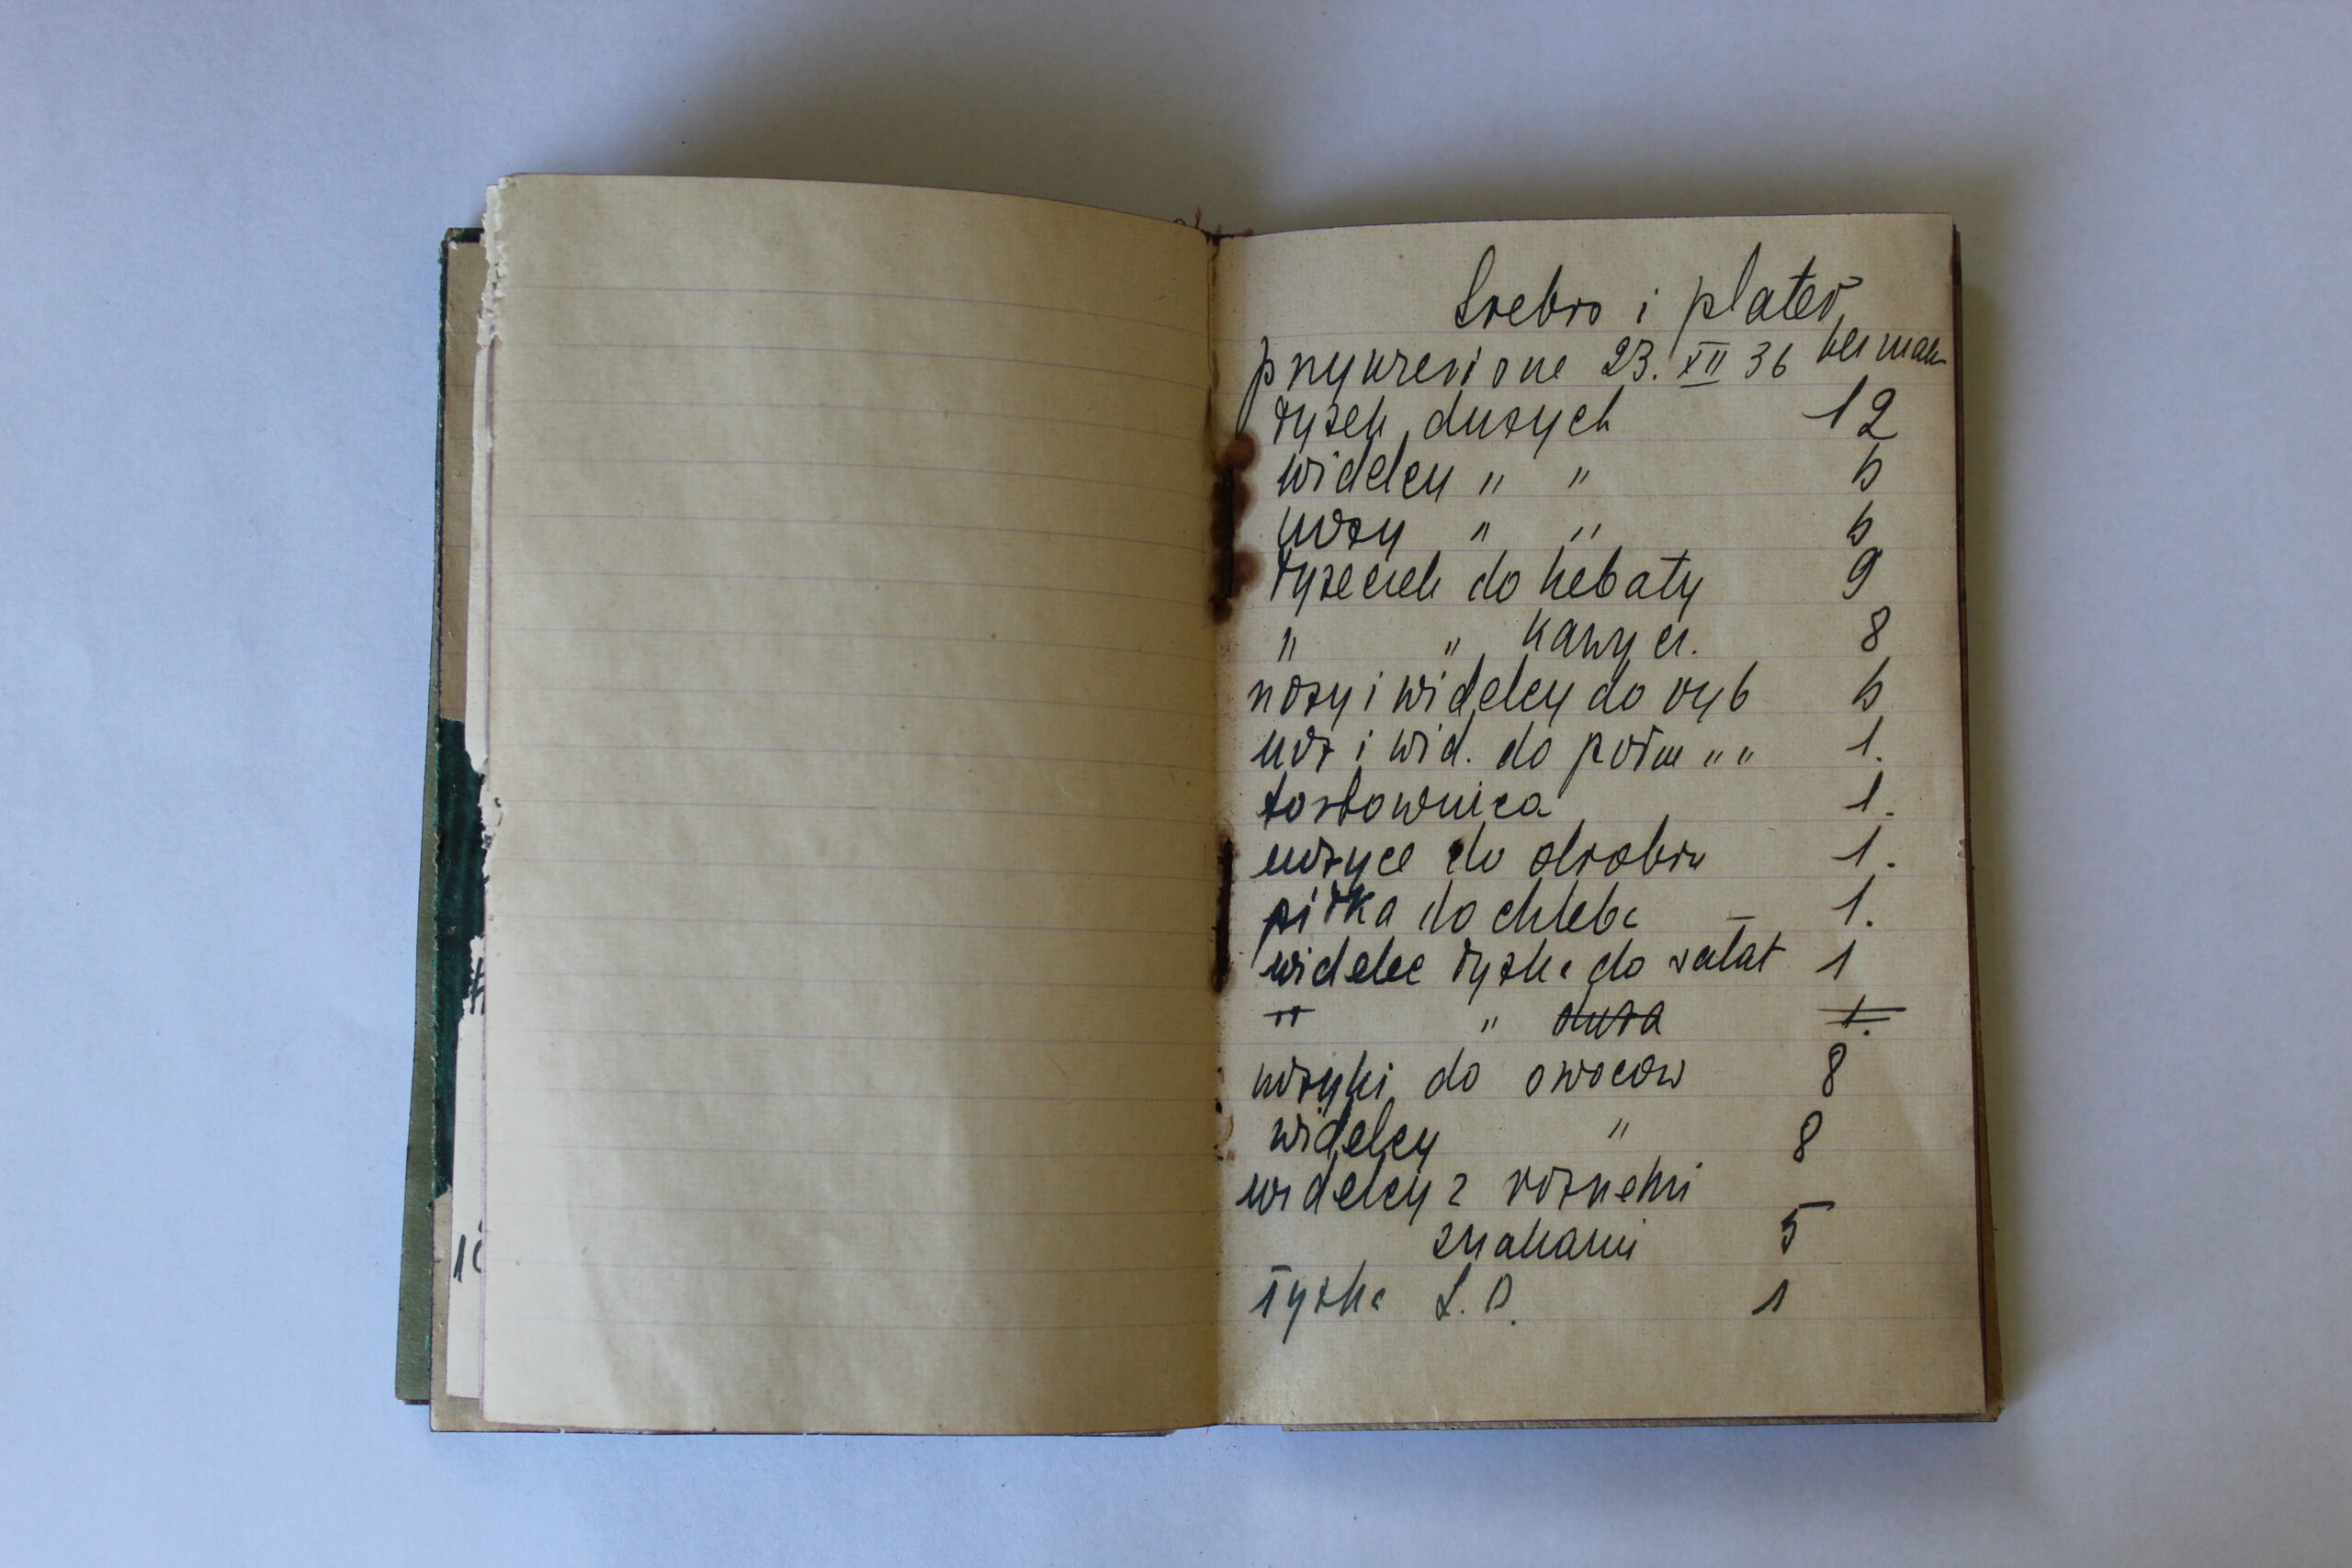 Srebro i plater
przywiezione 23. XII 36
łyżek dużych 12
widelcy " " 6
noży " " 6
łyżeczek do herbaty 9
" " kawy cz. 8
noży i widelcy do ryb 6
nóż i wid. do półm " " 1.
tostownica 1.
nożyce do drobiu 1.
piłka do chleba — 1.
widelec łyżka do sałat 1
" " duża 1.
nożyki do owoców 8
widelcy " 8
widelcy z różnemi
znakami 5
łyżka S. D. 1
10